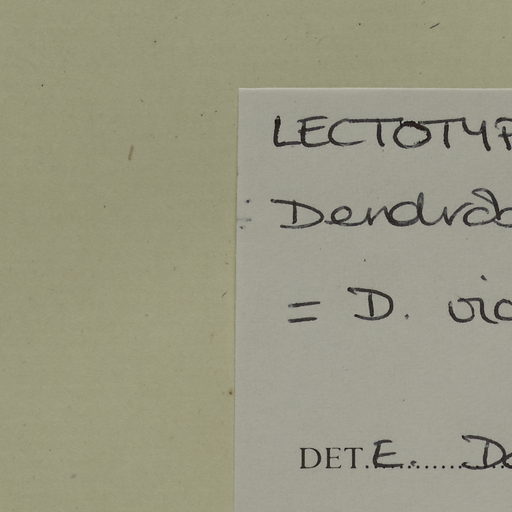 LECTOTYP
Dendrob
= D. vio
DET. E. Da